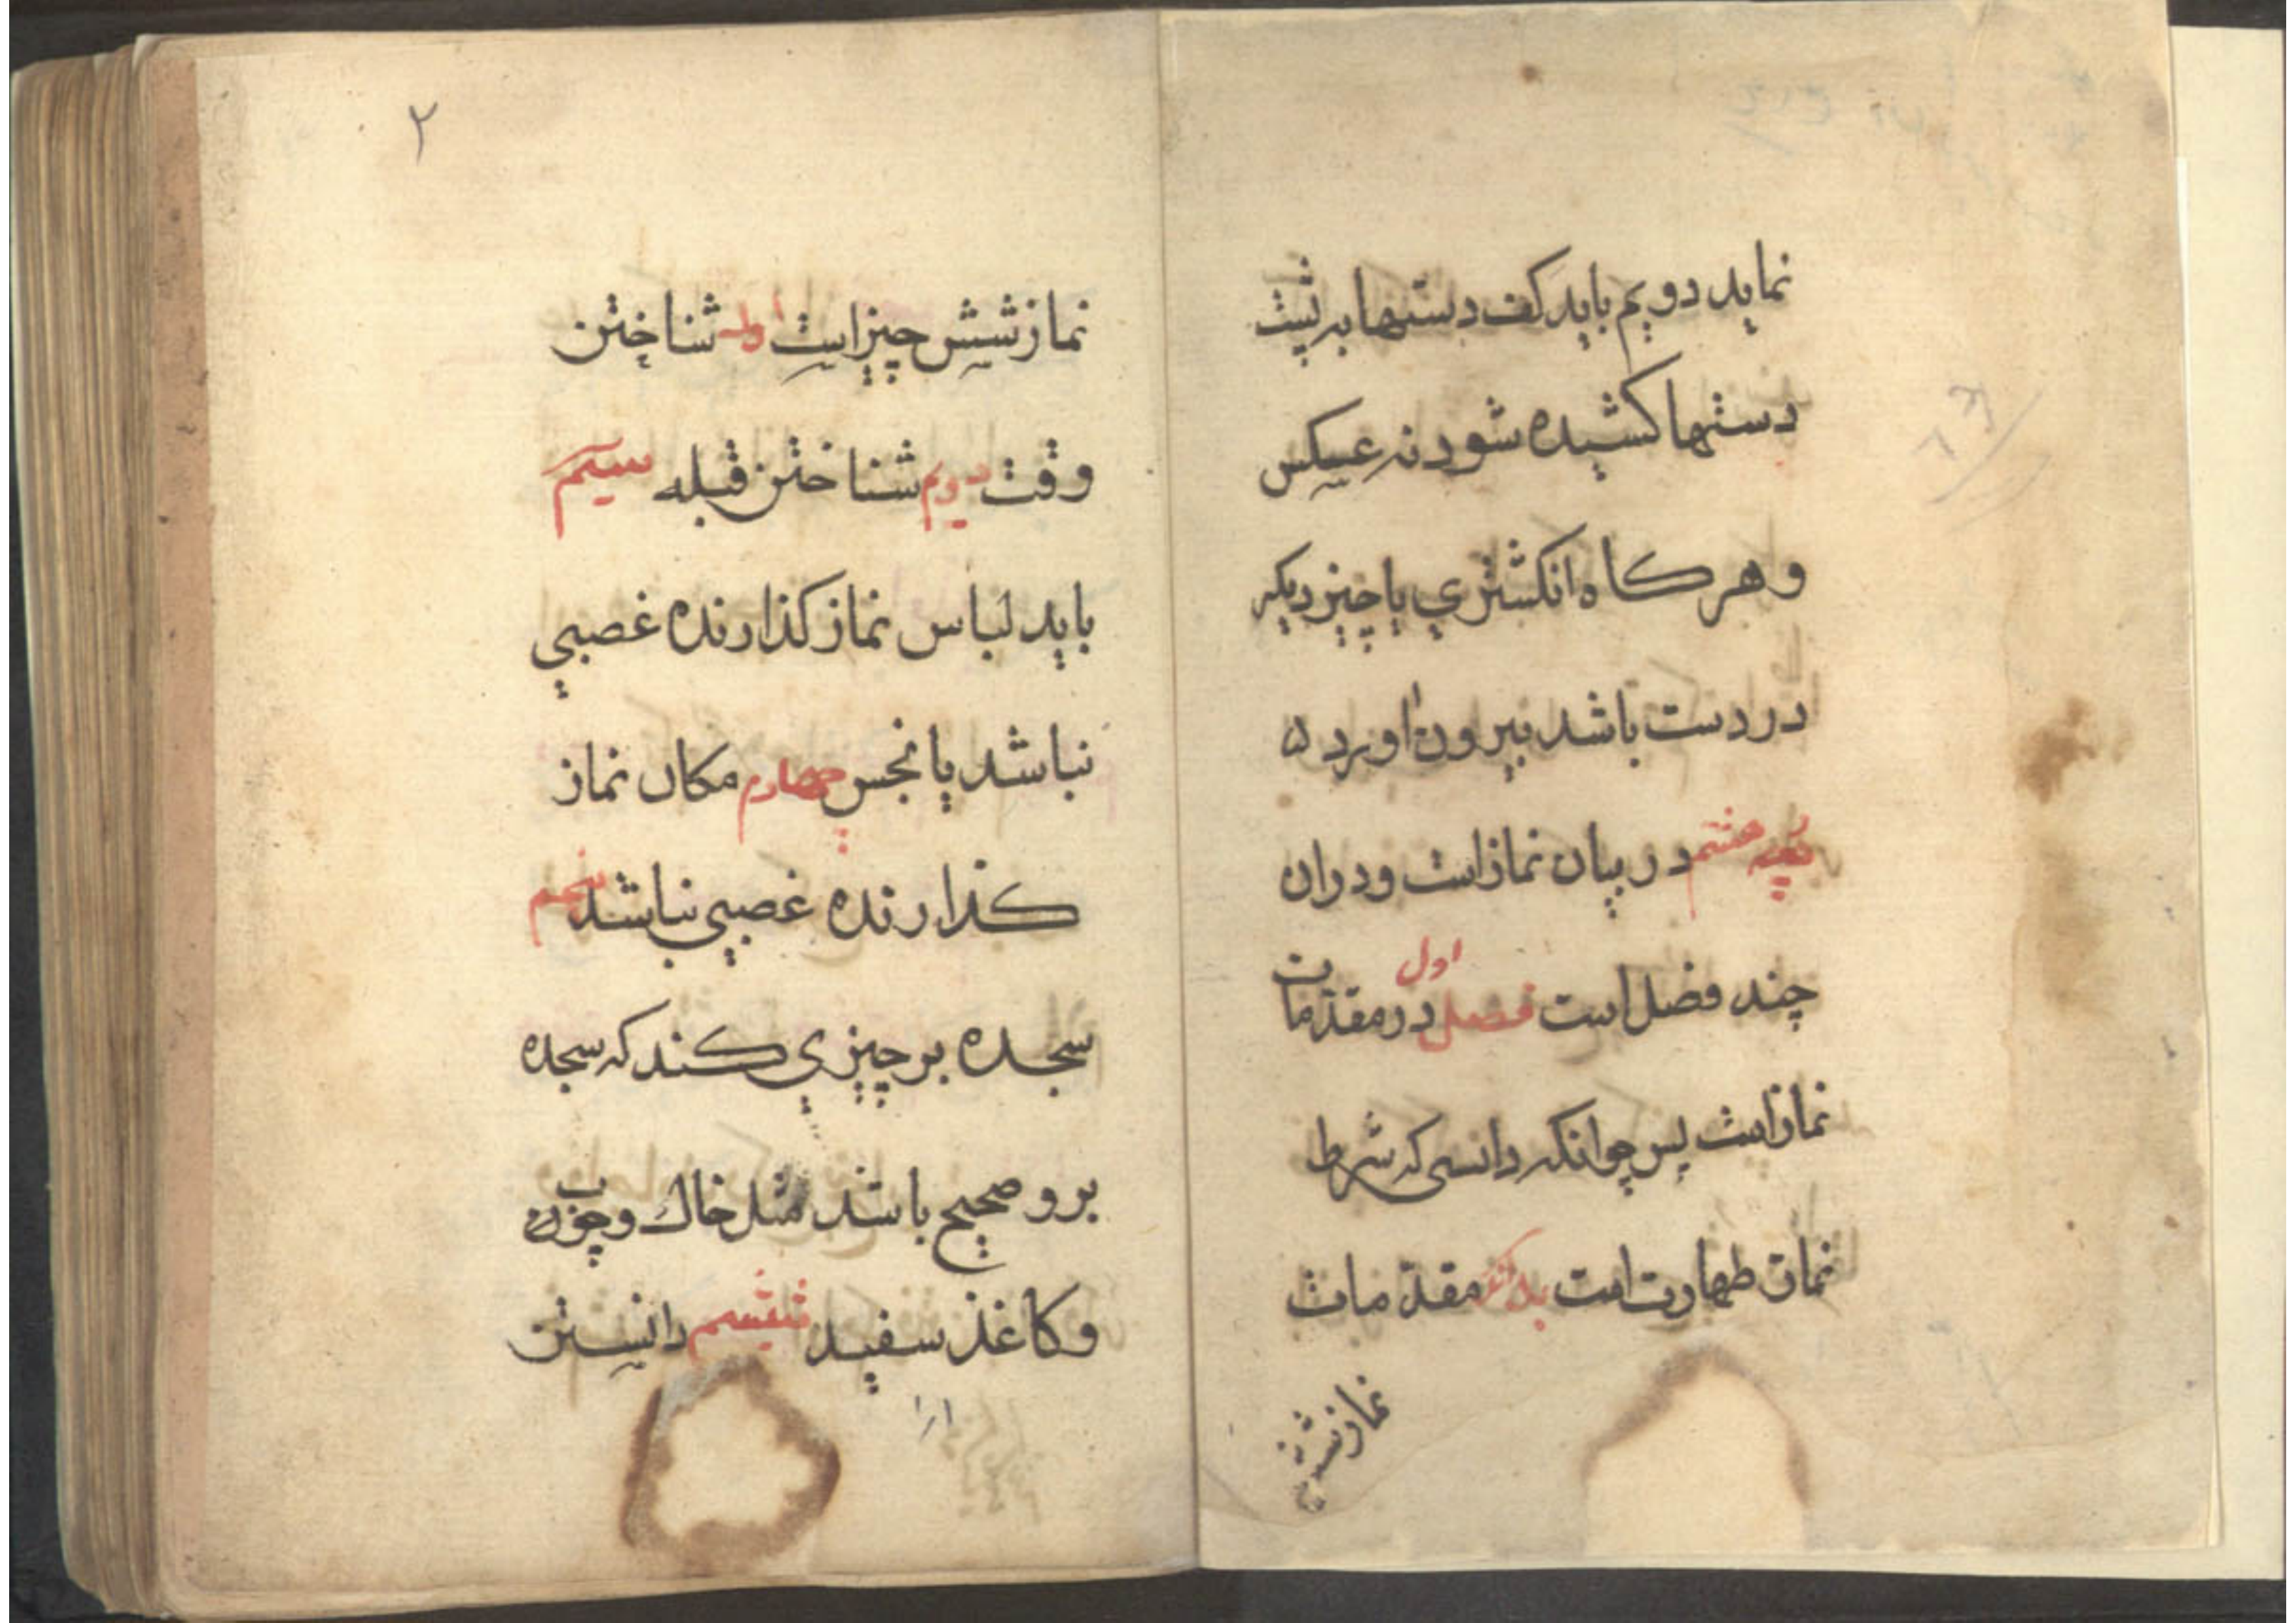 نماید دویم باید کف دستها به پشت
دستها کشیده شود نه عکس
و هر کاه انکشتري یا چیز دیکه
در دست باشد بیرون اورد ۵
هشتم در بیان نماز است و دران
چند فصل است فصل اول در مقدمات
نماز است پس چو انکه دانسی که شرط
نماز طهارت است بدانکه مقدمات
نماز شش
۲
نماز شش چیز است اول شناختن
وقت دویم شناختن قبله سیم
باید لباس نماز کذارنده غصبي
نباشد یا نجس چهارم مکان نماز
کذارنده غصبي نباشد پنجم
سجده بر چیزي کند که سجده
برو صحیح باشد مثل خاك و چوب
و کاغذ سفید ششم دانستن